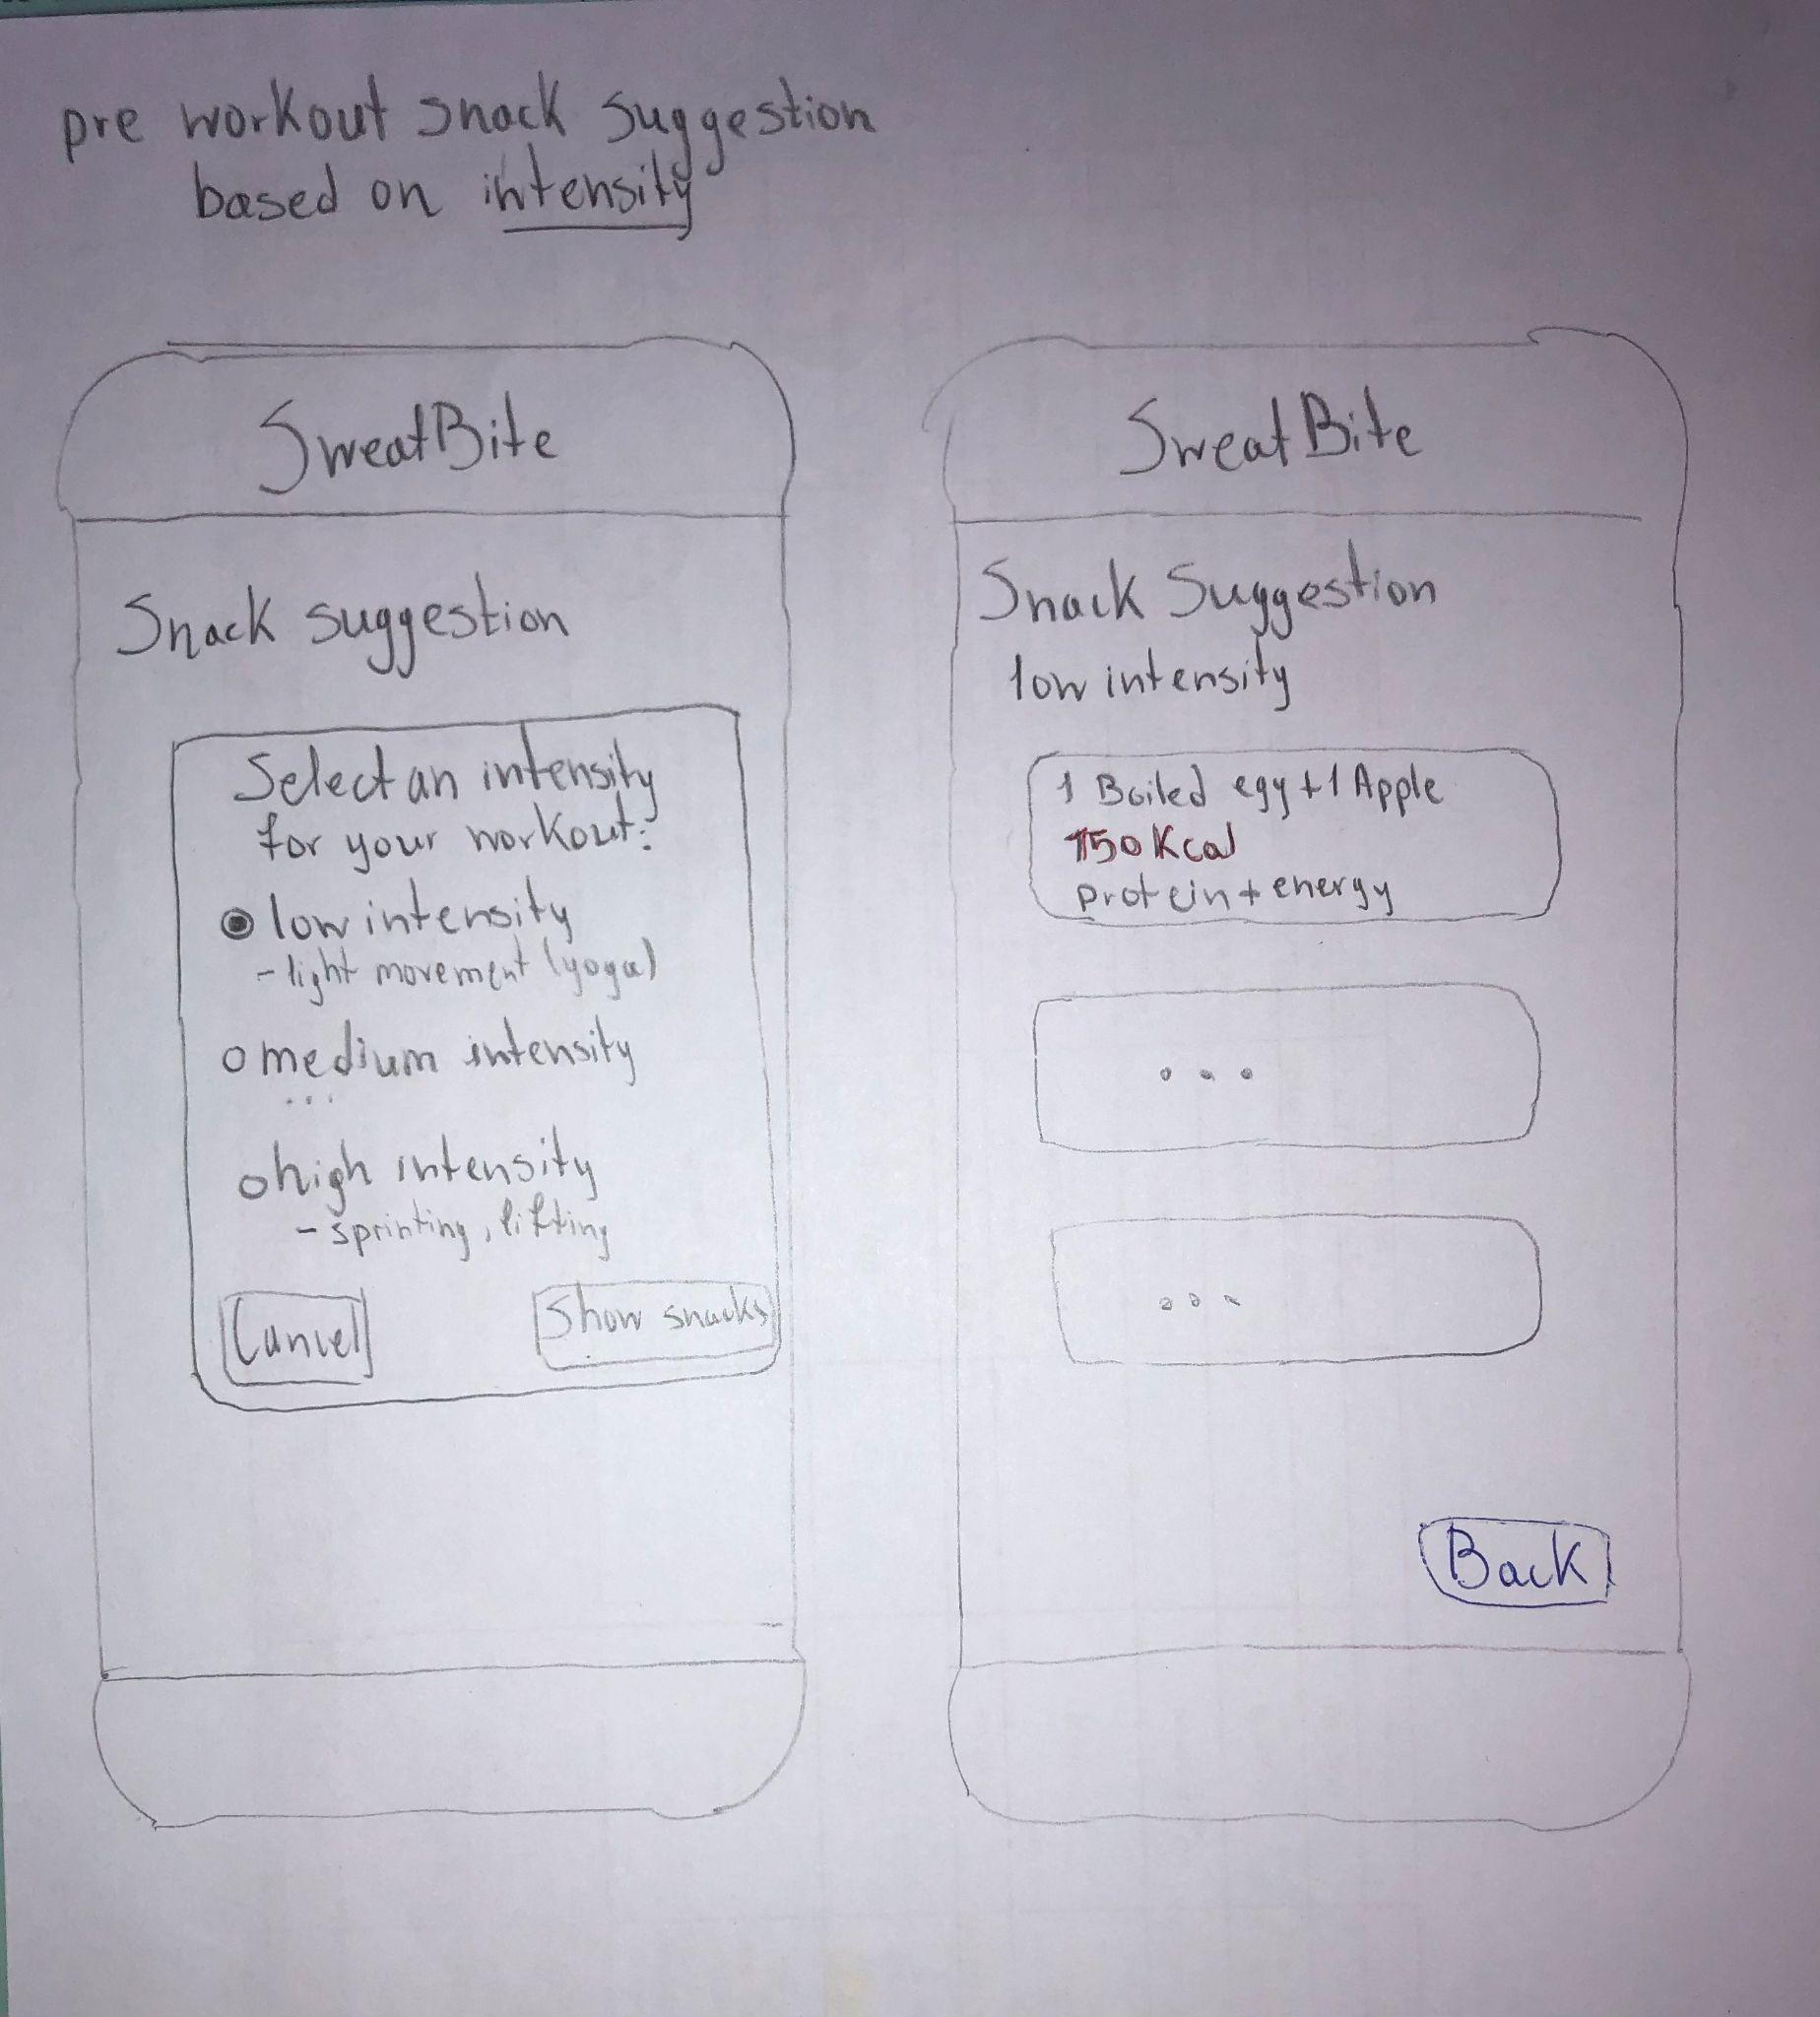 pre workout snack suggestion
based on intensity
SweatBite
Snack suggestion
Select an intensity
for your workout:
low intensity
- light movement (yoga)
medium intensity
...
high intensity
- sprinting, lifting
Cancel
Show snacks
SweatBite
Snack Suggestion
low intensity
1 Boiled egg + 1 Apple
150 Kcal
protein + energy
...
...
Back